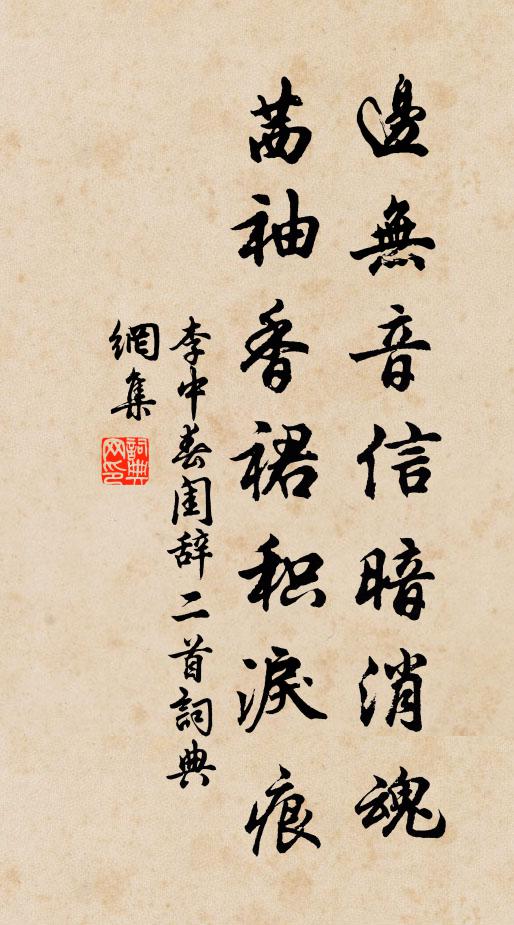 邊無音信暗消魂
茜袖香裙积淚痕
李中春闺辞二首詞典
網集
詞典網印